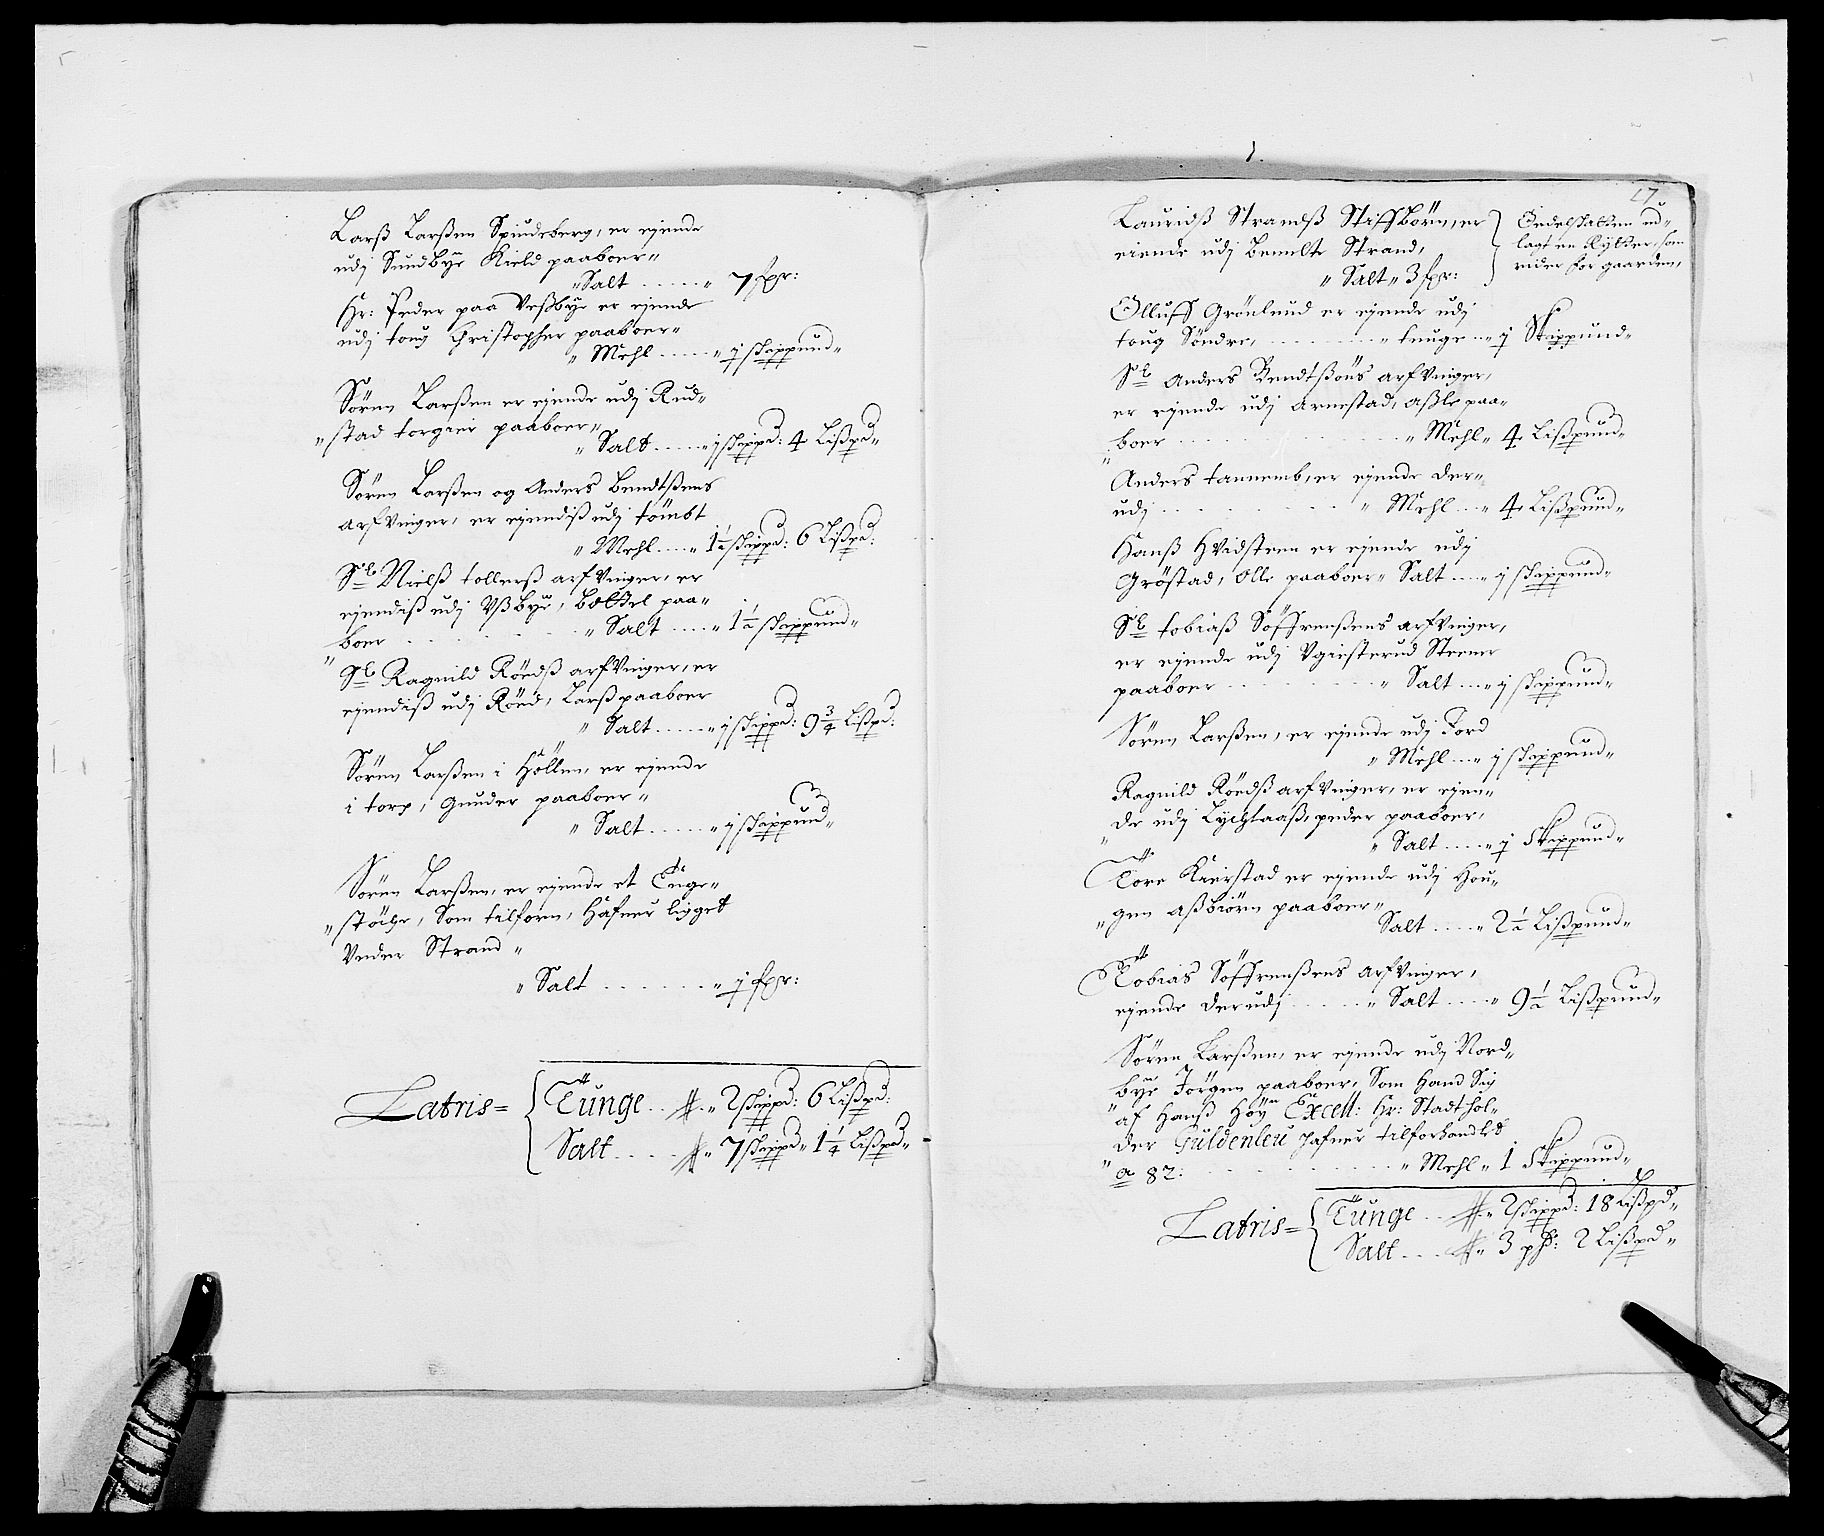 Larß Larßen Spindeberg, er ejende
udj Sundbye Kield paaboer"
"Salt ..... " 7 fpr:
Hr: Peder paa Veßbye er ejende
udj toug Christopher paaboer"
" Mehl ..... " j schippund"
Sören Larßen er ejende udj Rud"
"stad torgier paaboer"
" Salt ..... " j schippd: 4 Lißpd"
Sören Larßen og Anders Bendtßens
arfvinger, er ejendiß udj tömbt
" Mehl .... " 1½ schippd: 6 Lißpd:
Sl Nielß tollerß arfvinger, er
ejendiß udj Vßbye, Bottel paa"
boer . . . . . " Salt .... " 1½ schippund"
Sl Ragnild Röedß arfvinger, er
ejendiß udj Röed, Larß paaboer
" Salt ..... " j schippd: 9¾ Lißpd:
Sören Larßen i Höllen, er ejende
i torp, Gunder paaboer"
" Salt ..... " j schippund"
Sören Larßen, er ejende et Tüge"
"stöche, Som tilforn, Hafner ligget
Under Strand"
" Salt ....... " j fpr:
Latris= Tünge .. " 2 schippd: 6 Lißpd:
Salt ..... " 7 schippd" 1¼ Lißpd"
17
Lauridß Strandß Stiffbörn, er
eiende udj bemelte Strand,
" Salt " 3 fpr:
Oedelschatten ud"
lagt en Rytter, som
rider for gaarden,
Olluff Grönlund er ejende udj
toug Söndre, ....... " tunge .. " j Skippund"
Sl Anders Bendtßöns arfvinger,
er ejende udj Arnestad, Aßle paa"
boer ........... " Mehl " 4 Lißpund"
Anders tannemb, er ejende der"
udj .......... " Mehl ... " 4 Lißpund"
Hanß Hvidsteen er ejende udj
Gröstad, Olle paaboer " Salt .... " j schippund"
Sl tobiaß Söffrenßens arfvinger,
er ejende udj Vgiesterud Steener
paaboer ........ " Salt .... " j schippund"
Sören Larßen, er ejende udj Ford
" Mehl ... " j schippund"
Ragnild Röedß arfvinger, er ejen"
"de udj Lychtaaß, peder paaboer,
" Salt ..... " j Skippund"
Tore Kierstad er ejende udj Hou"
"gen Aßbiörn paaboer"
Salt ..... " 2½ Lißpund"
Tobias Söffrenßens arfvinger,
ejende derudj ..... " Salt ..... " 9½ Lißpund"
Sören Larßen, er ejende udj Nord"
"bye Jörgen paaboer, Som Hand Sig
af Hanß Höy Excell: Hr: Stadthol"
der Guldenleu hafner tilforhandlet
" a 82: ........... " Mehl " 1 Skippund"
Latris= Tünge .. " 2 schippd: 18 Lißpd"
Salt .... " 3 pß: 2 Lißpd"